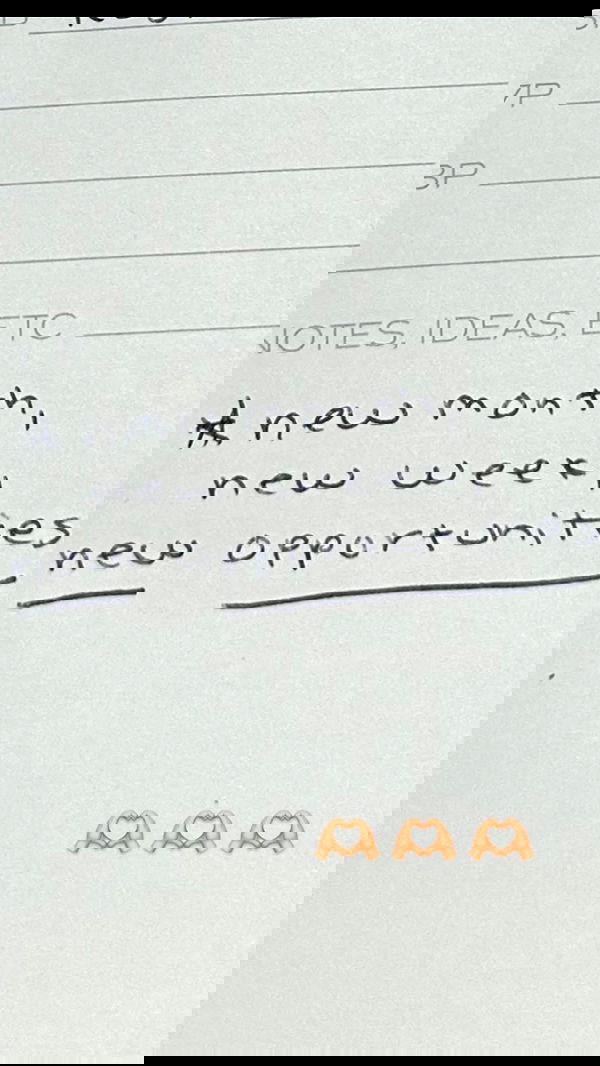 4P
3P
NOTES, IDEAS, ETC
* new month,
new week,
new opportunities